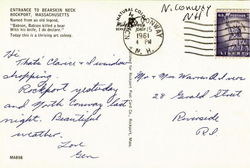 ENTRANCE TO BEARSKIN NECK
ROCKPORT, MASSACHUSETTS
Named from an old legend,
"Babson, Babson killed a bear
With his knife, I do declare."
Today this is a thriving art colony.
N. Conway
NH
NATURAL COLOR
CONWAY
15
1961
PM
N. H.
Hi
Thats Clarice &
shopping.
Rockport yesterday
and North Conway last
night. Beautiful
weather.
Love
Gen
Mr & Mrs Warren
28 Gerald Street
Riverside
R.I.
MA898